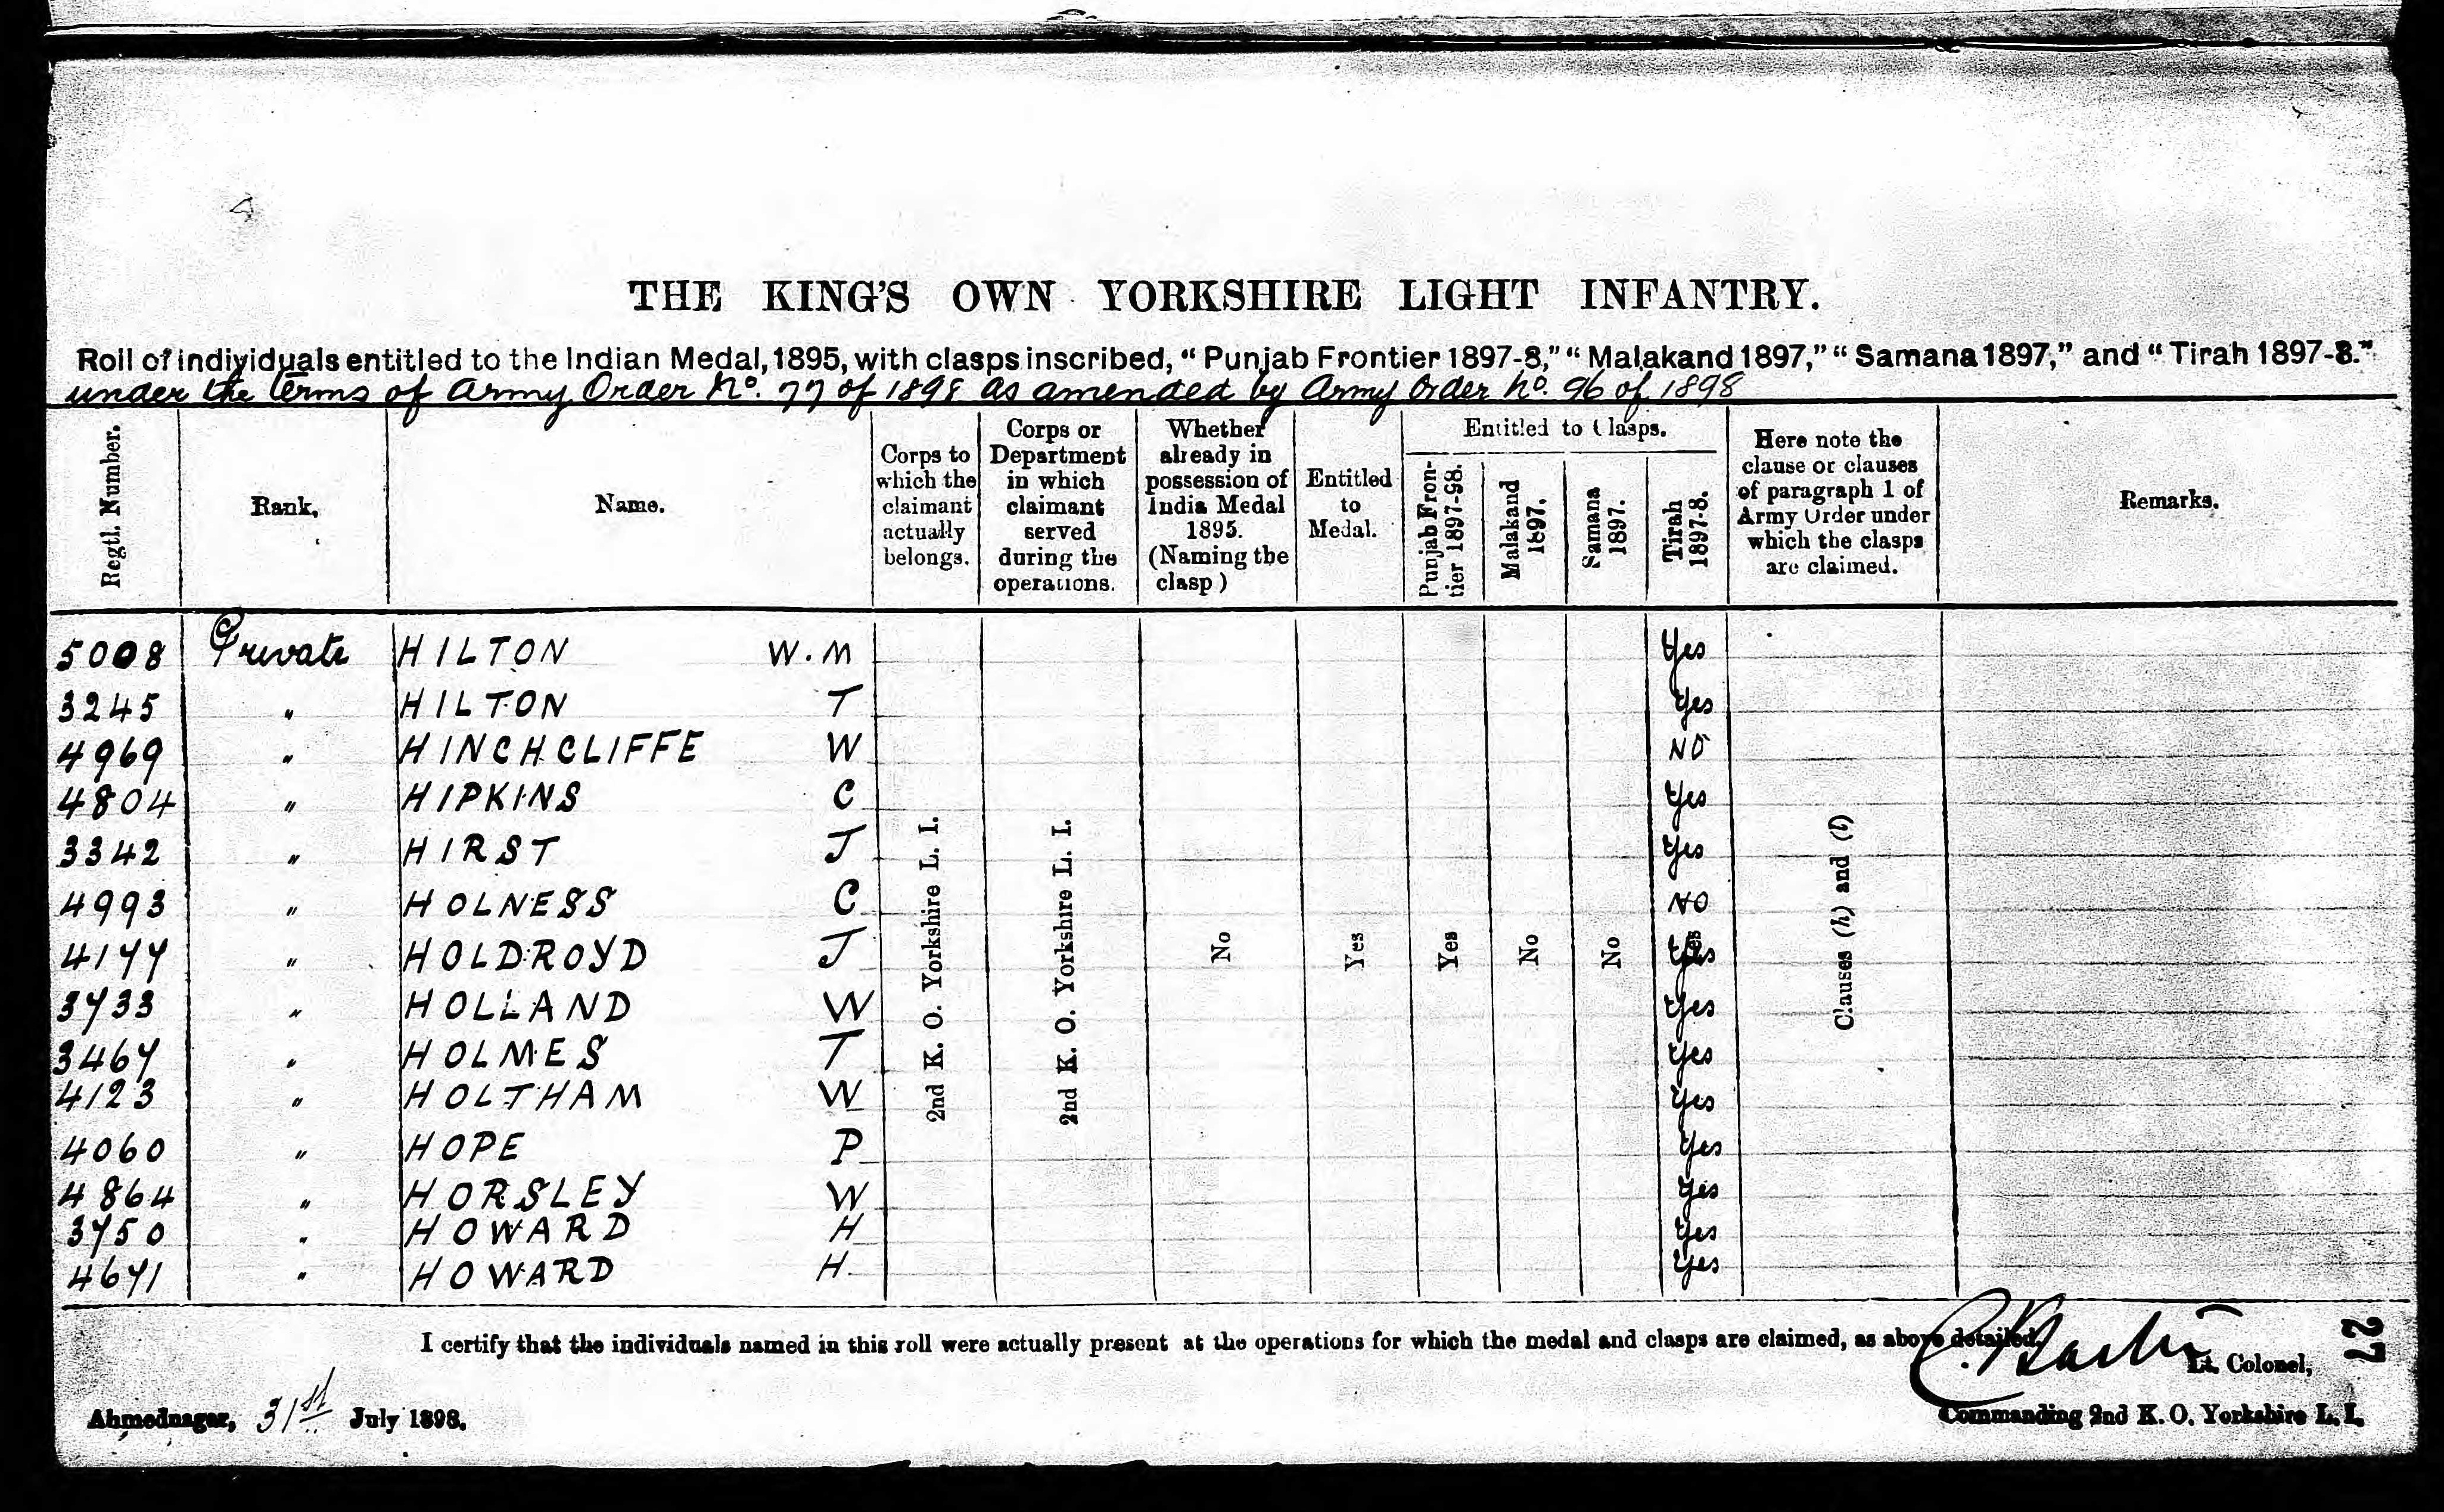 THE KING'S OWN YORKSHIRE LIGHT INFANTRY.
Roll of individuals entitled to the Indian Medal, 1895, with clasps inscribed, "Punjab Frontier 1897-8," "Malakand 1897," "Samana 1897," and "Tirah 1897-8."
under the terms of Army Order No. 77 of 1898 as amended by Army Order No. 96 of 1898
Regtl. Number.
Rank.
Name.
Corps to which the claimant actually belongs.
Corps or Department in which claimant served during the operations.
Whether already in possession of India Medal 1895. (Naming the clasp)
Entitled to Medal.
Entitled to Clasps.
Punjab Frontier 1897-98.
Malakand 1897.
Samana 1897.
Tirah 1897-8.
Here note the clause or clauses of paragraph 1 of Army Order under which the clasps are claimed.
Remarks.
5008 Private HILTON W.M Yes
3245 " HILTON T Yes
4969 " HINCHCLIFFE W NO
4804 " HIPKINS C Yes
3342 " HIRST J Yes
4993 " HOLNESS C NO
4177 " HOLDROYD J Yes
3733 " HOLLAND W Yes
3467 " HOLMES T Yes
4123 " HOLTHAM W Yes
4060 " HOPE P Yes
4864 " HORSLEY W Yes
3750 " HOWARD H Yes
4671 " HOWARD H Yes
2nd K. O. Yorkshire L. I.
2nd K. O. Yorkshire L. I.
No
Yes
Yes
No
No
Yes
Clauses (h) and (l)
I certify that the individuals named in this roll were actually present at the operations for which the medal and clasps are claimed, as above detailed.
Lt. Colonel,
27
Ahmednagar, 31st July 1898.
Commanding 2nd K. O. Yorkshire L. I.